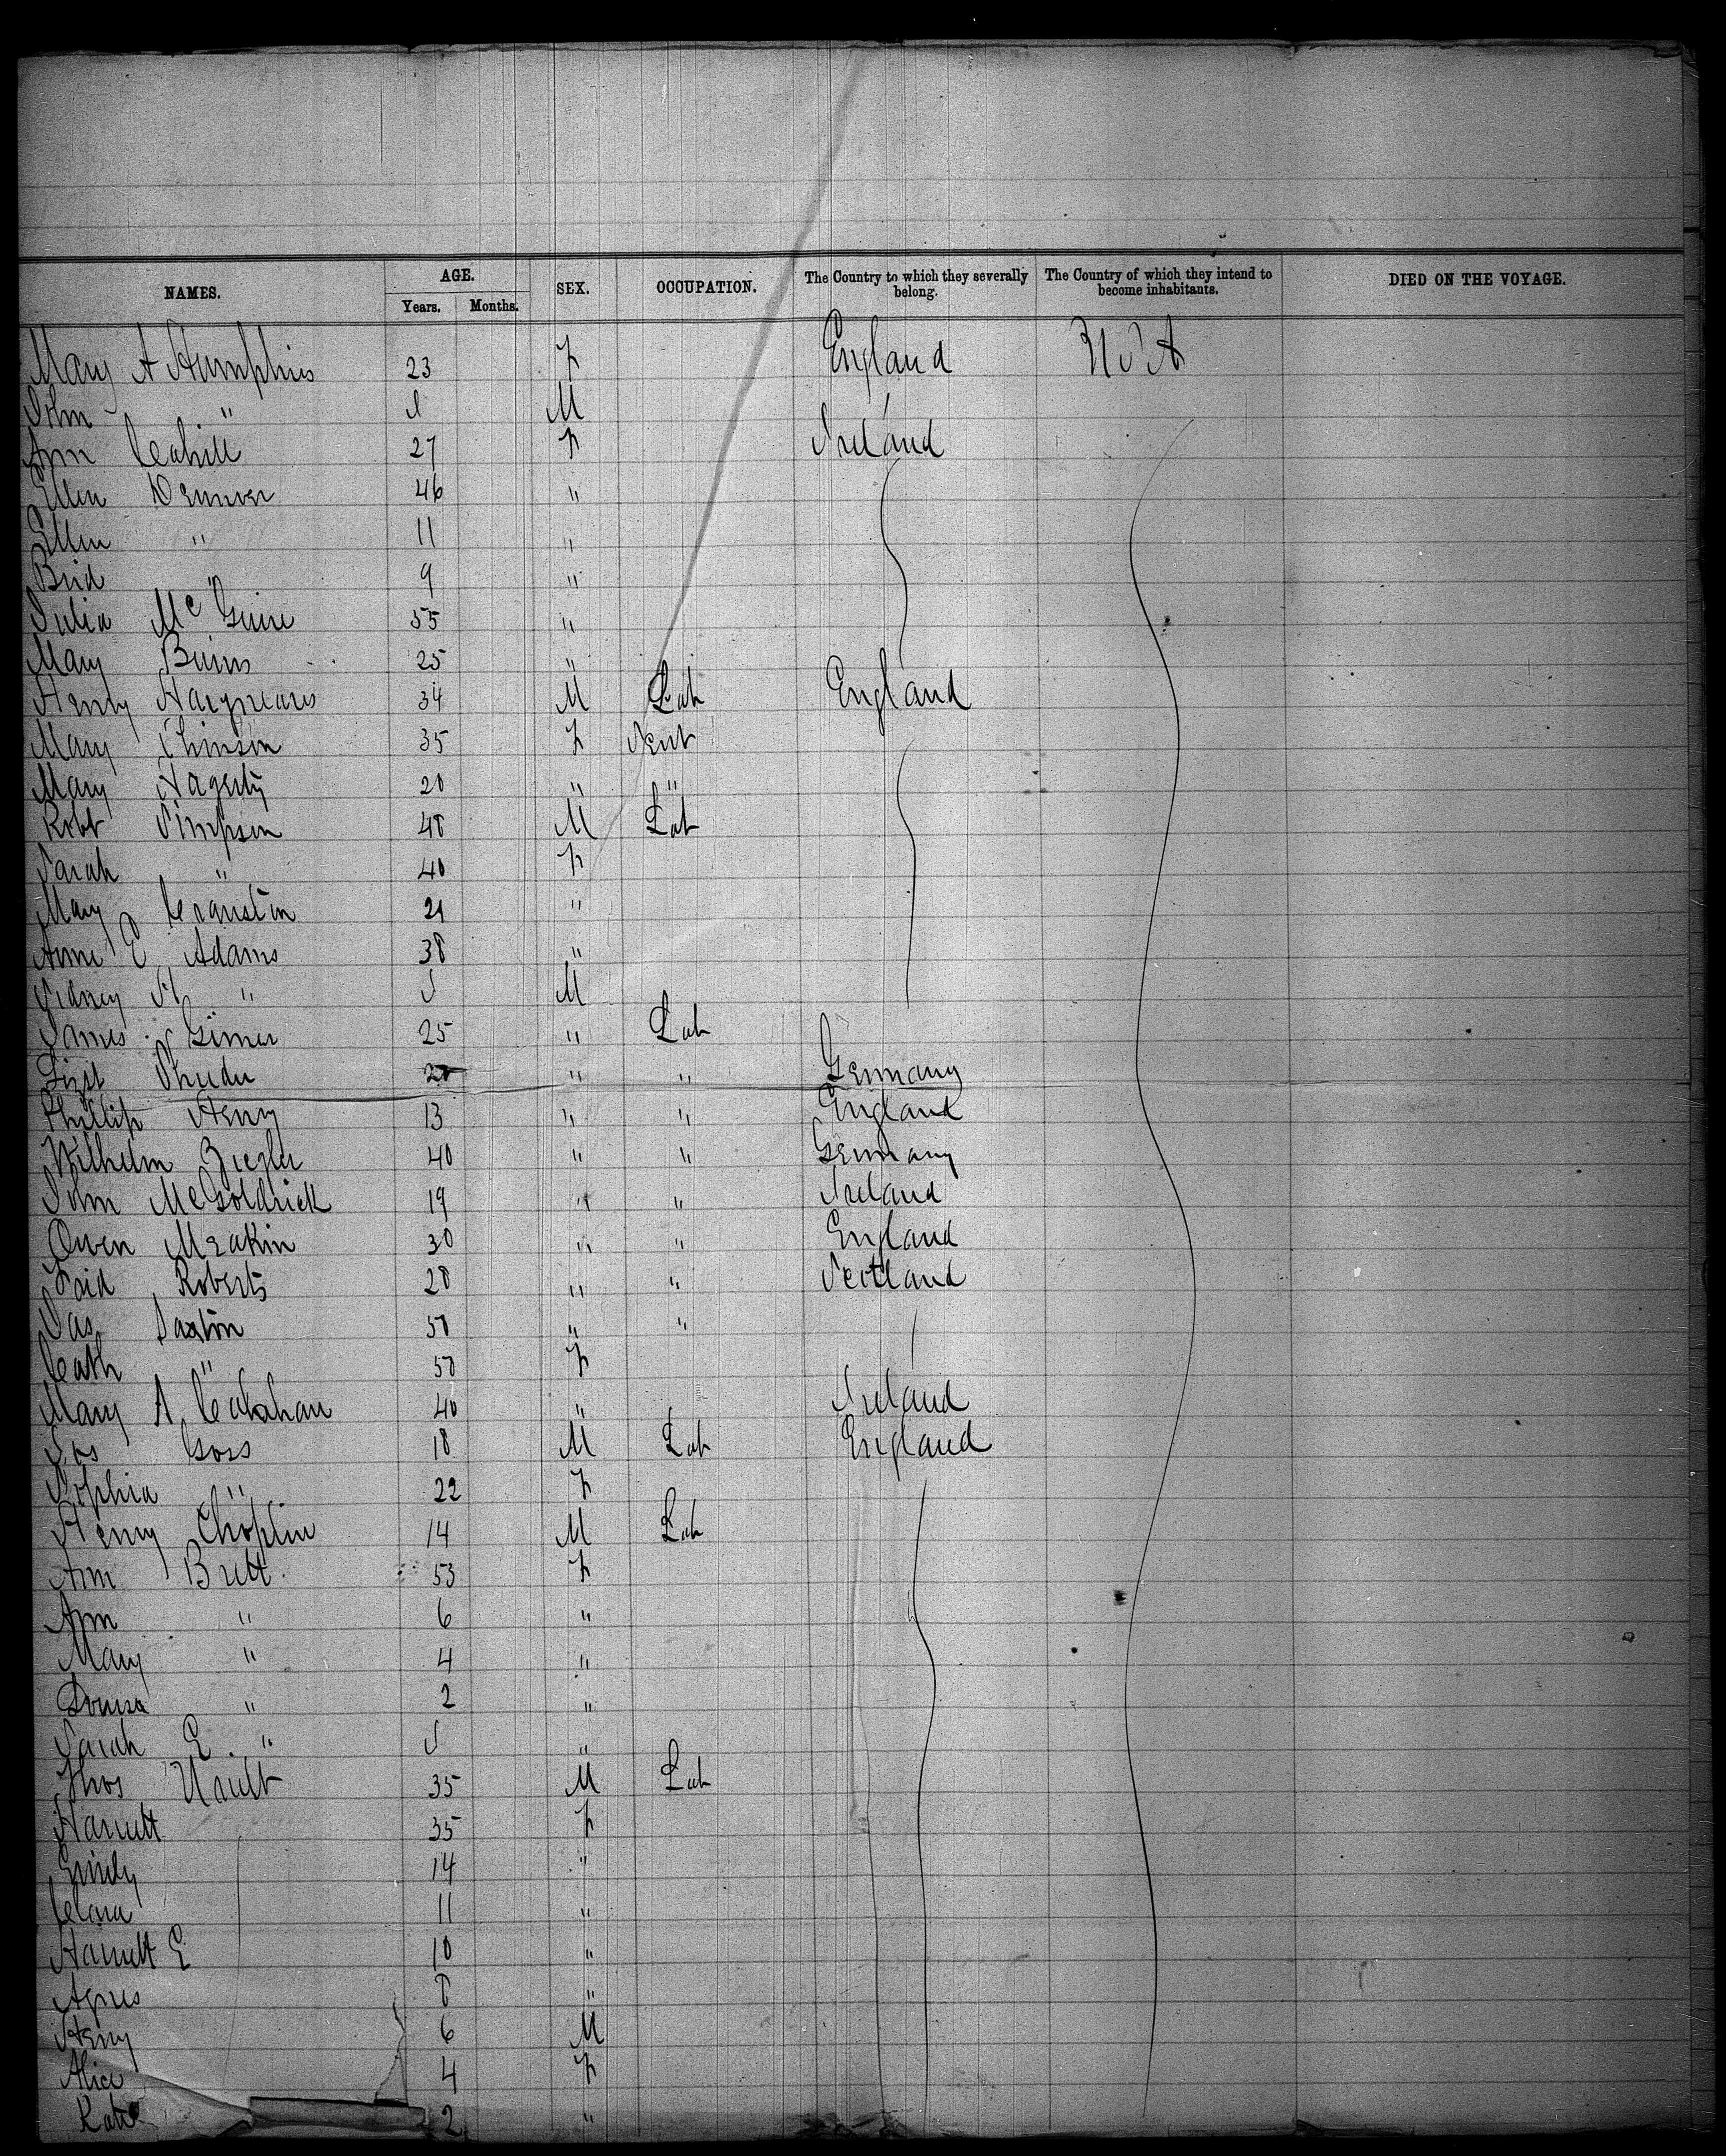 NAMES. AGE. Years. Months. SEX. OCCUPATION. The Country to which they severally belong. The Country of which they intend to become inhabitants. DIED ON THE VOYAGE.
Mary A Humphries 23 F England USA
John " M
Ann Cahill 27 F Ireland
Ellen Denver 46 "
Ellen " 11 "
Brid " 9 "
Julia McGuire 55 "
Mary Burns 25 "
Henry Hargreaves 34 M Lab England
Mary Johnson 35 F Sert
Mary Hagerty 20 " "
Robt Simpson 48 M Lab
Sarah " 40 F
Mary Cranston 21 "
Anne E Adams 38 "
Sidney H " M
James 25 " Lab
20 " " Germany
Phillip Henry 13 " " England
Wilhelm Ziegler 40 " " Germany
John McGoldrick 19 " " Ireland
Owen Meakin 30 " " England
Roberts 28 " " Scotland
Jas Saxton 50 " "
Cath " 50 F
Mary A Calahan 40 " Ireland
Jos Goss 18 M Lab England
Sophia " 22 F
Henry Choplin 14 M Lab
Ann Britt 53 F
Ann " 6 "
Mary " 4 "
Louisa " 2 "
Sarah E " "
Thos Nault 35 M Lab
Harriett 35 F
Emily 14 "
Clara 11 "
Harriett E 10 "
Agnes 8 "
Henry 6 M
Alice 4 F
Kate 2 "